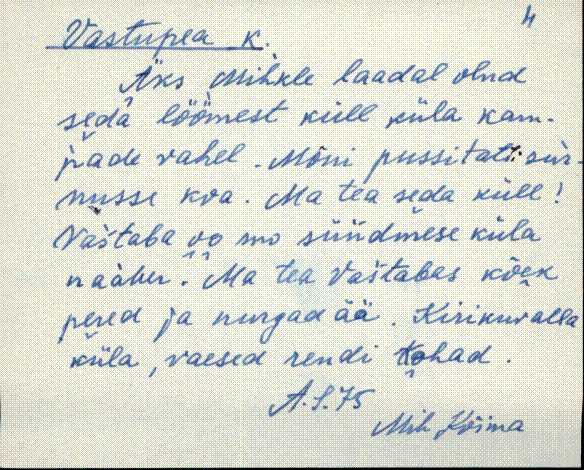 4
Vastupea k.
Äks Mihkle laadal olnd
seda löömest küll küla kam-
pade vahel. Mõni pussitati sur-
nusse kva. Ma tea seda küll!
Vaštaba vo mo sündmese küla
naaber. Ma tea Vaštabas kõek
pered ja nurgad ää. Kirikuvalla
küla, vaesed rendi kohad.
A.S.75
Mih Kõima